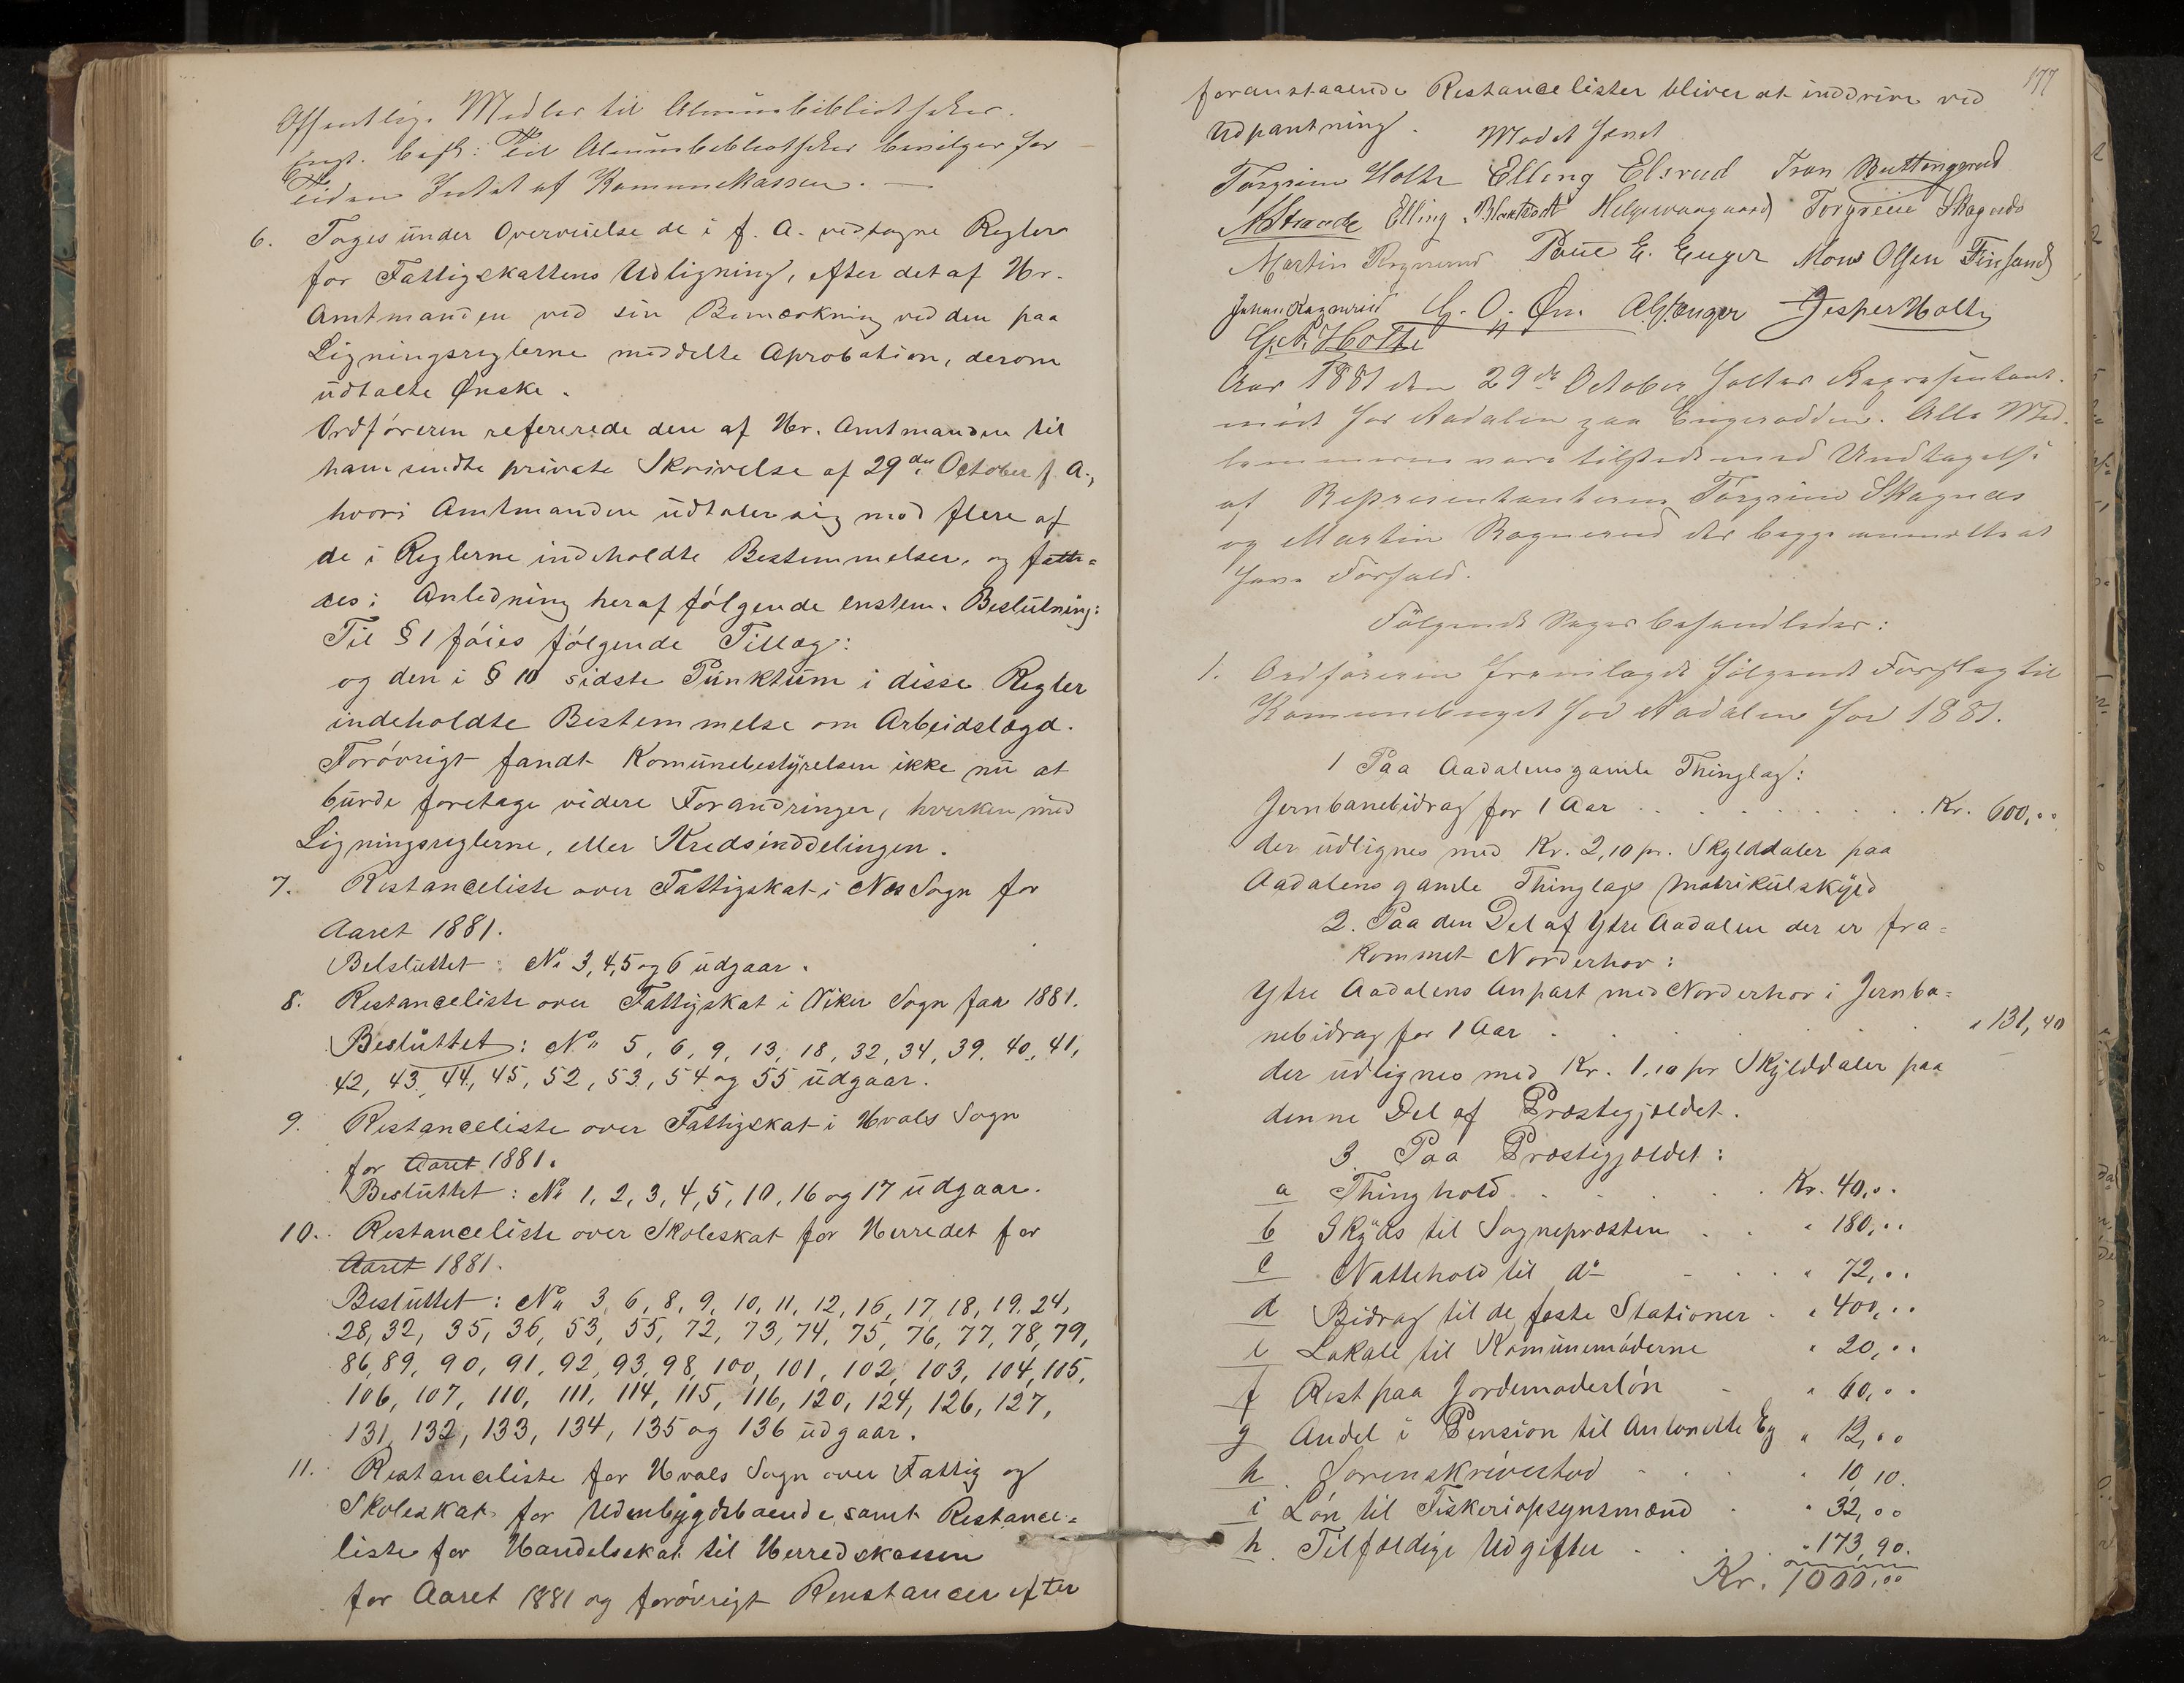 Offentlige Midler til Almuebibliotheker.
Enst. besl: Til Almuebibliotheker bevilges for
Tiden Intet af Kommunekassen. —
6. Toges under Overveielse de i f. A. vedtagne Regler
for Fattigskattens Udligning, efter det af Hr.
Amtmanden ved sin Bemærkning ved den paa
Ligningsreglerne meddelte Aprobation, derom
udtalte Ønske.
Ordføreren refererede den af Hr. Amtmanden til
ham sendte private Skrivelse af 29de October f. A.,
hvori Amtmanden udtaler sig mod flere af
de i Reglerne indeholdte Bestemmelser, og fatte=
des i Anledning heraf følgende enstem. Beslutning:
Til § 1 føies følgende Tillæg:
og den i § 10 sidste Punktum i disse Regler
indeholdte Bestemmelse om Arbeidslægd.
Forøvrigt fandt Komunebestyrelsen ikke nu at
burde foretage videre Forandringer, hverken med
Ligningsreglerne, eller Kredsinddelingen.
7. Restanceliste over Fattigskat i Næs Sogn for
Aaret 1881.
Belsluttet: No 3, 4, 5 og 6 udgaar.
8. Restanceliste over Fattigskat i Viker Sogn for 1881.
Besluttet: No 5, 6, 9, 13, 18, 32, 34, 39, 40, 41,
42, 43, 44, 45, 52, 53, 54 og 55 udgaar.
9. Restanceliste over Fattigskat i Hvals Sogn
for Aaret 1881.
Besluttet: No 1, 2, 3, 4, 5, 10, 16 og 17 udgaar.
10. Restanceliste over Skoleskat for Herredet for
Aaret 1881.
Besluttet: No 3, 6, 8, 9, 10, 11, 12, 16, 17, 18, 19, 24,
28, 32, 35, 36, 53, 55, 72, 73, 74, 75, 76, 77, 78, 79,
86, 89, 90, 91, 92, 93, 98, 100, 101, 102, 103, 104, 105,
106, 107, 110, 111, 114, 115, 116, 120, 124, 126, 127,
131, 132, 133, 134, 135 og 136 udgaar.
11. Restanceliste for Hvals Sogn over Fattig og
Skoleskat for Udenbygdsboende, samt Restance=
liste for Handelsskat til Herredskassen
for Aaret 1881 og forøvrigt Renstancer efter
177
foranstaaende Restancelister bliver at inddrive ved
Udpantning. Mødet hævet
Torgrim Holte Elling Elsrud Iver Buttingsrud
AStrande Elling Blakstvedt Helge Torgrim Skagnæs
Martin Ragnerud Poul E. Enger Mons Olsen Finsand
Johan Ragnerud G. O. Øen Enger Jesper Holte
G. A. Holte
Aar 1881 den 29de October holtes Repræsentant-
møde for Aadalen paa Engerodden. Alle Med-
lemmerne vare tilstede med Undtagelse
af Repræsentanterne Torgrim Skagnæs
og Martin Ragnerud der begge anmeldte at
have Forfald.
Følgende Sager behandledes:
1. Ordføreren fremlagde følgende Forslag til
Komunebuget for Aadalen for 1881.
1 Paa Aadalens gamle Thinglag:
Jernbanebidrag for 1 Aar . . . Kr. 600,00
der udlignes med Kr. 2,10 pr. Skylddaler paa
Aadalens gamle Thinglags Matrikulskyld
2. Paa den Del af Ytre Aadalen der er fra=
kommet Norderhov:
Ytre Aadalens Anpart med Norderhov i Jernba=
nebidrag for 1 Aar . . . " 131,40
der udlignes med Kr. 1,10 pr Skylddaler paa
denne Del af Præstegjældet.
3. Paa Præstegjældet:
a Thinghold . . . Kr. 40,00
b Skyds til Sognepræsten . . " 180,00
c Nattehold til do . . " 72,00
d Bidrag til de faste Stationer . " 400,00
e Lokale til Komunemøderne " 20,00
f Rest paa Jordemoderløn " 60,00
g Andel i Pension til Antonette Eg " 12,00
h Sorenskrivertod . . " 10,10.
i Løn til Fiskeriopsynsmænd . " 32,00
k Tilfældige Udgifter . . . " 173,90.
Kr. 1000,00